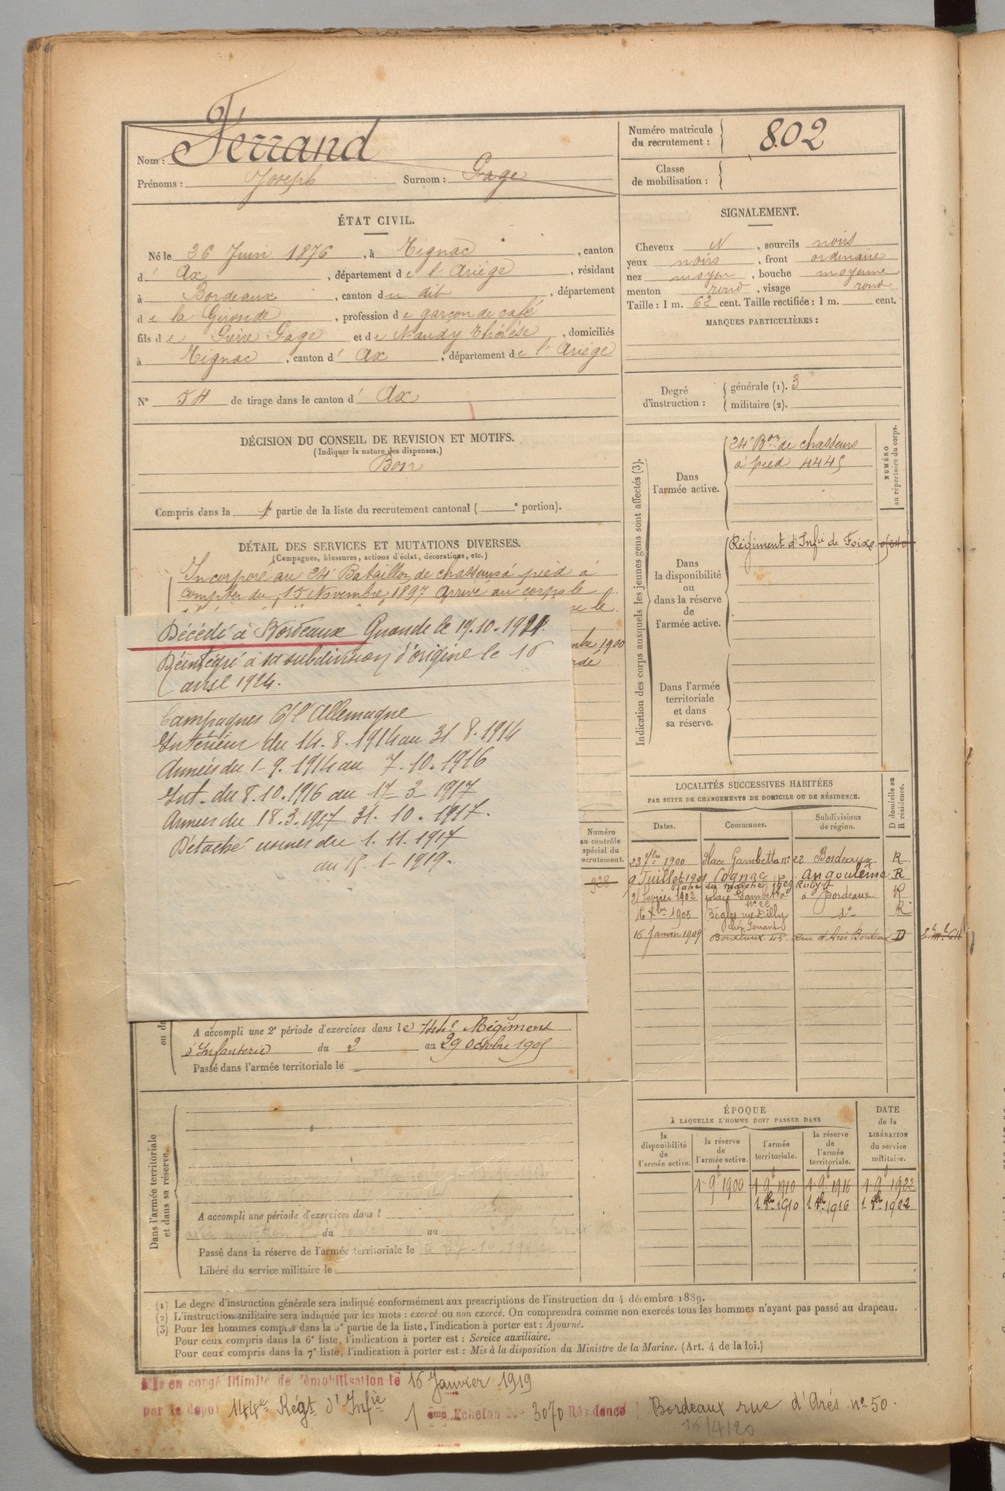 Nom : Ferrand
Prénoms : Joseph Surnom : Gage
Numéro matricule du recrutement : 802
Classe de mobilisation :
ÉTAT CIVIL.
Né le 26 Juin 1876, à Tignac, canton
d' Ax, département de l'Ariège, résidant
à Bordeaux, canton du dit, département
de la Gironde, profession de garçon de café
fils de Pierre Gage et de Naudy Thérèse, domiciliés
à Tignac, canton d' Ax, département de l'Ariège
N° 54 de tirage dans le canton d' Ax
DÉCISION DU CONSEIL DE REVISION ET MOTIFS.
(Indiquer la nature des dispenses.)
Bon
Compris dans la 1 partie de la liste du recrutement cantonal ( ° portion).
DÉTAIL DES SERVICES ET MUTATIONS DIVERSES.
(Campagnes, blessures, actions d'éclat, décorations, etc.)
Incorporé au 24e Bataillon de chasseurs à pied à
compter du 15 Novembre 1897 Arrivé au corps le
Décédé à Bordeaux Gironde le 19.10.1921.
Réintégré à sa subdivision d'origine le 16
avril 1924.
Campagnes C/ l'Allemagne
Intérieur du 14.8.1914 au 31.8.1914
Armées du 1-9.1914 au 7.10.1916
Int. du 8.10.1916 au 17-3-1917
Armées du 18.3.1917 31.10.1917.
Détaché usines du 1.11.1917
au 15-1-1919.
A accompli une 2e période d'exercices dans le 144e Régiment
d'Infanterie du 2 au 29 octobre 1905
Passé dans l'armée territoriale le
Dans l'armée territoriale et dans sa réserve.
A accompli une période d'exercices dans l
du au
Passé dans la réserve de l'armée territoriale le
Libéré du service militaire le
SIGNALEMENT.
Cheveux N, sourcils noirs
yeux noirs, front ordinaire
nez moyen, bouche moyenne
menton rond, visage rond
Taille : 1 m. 62 cent. Taille rectifiée : 1 m. cent.
MARQUES PARTICULIÈRES :
Degré d'instruction : générale (1). 3
militaire (2).
Indication des corps auxquels les jeunes gens sont affectés (3).
NUMÉRO au répertoire du corps.
Dans l'armée active.
24e Bon de chasseurs
à pied 4445
Dans la disponibilité ou dans la réserve de l'armée active.
Régiment d'Infie de Foix
Dans l'armée territoriale et dans sa réserve.
Numéro au contrôle spécial du recrutement.
928
LOCALITÉS SUCCESSIVES HABITÉES
PAR SUITE DE CHANGEMENTS DE DOMICILE OU DE RÉSIDENCE.
Dates. Communes. Subdivisions de région. D domicile ou R résidence.
23 7bre 1900 place Gambetta n° 22 Bordeaux R
9 Juillet 1901 Cognac Angoulême R
21 février 1902 place Gambetta à Bordeaux R
6 Xbre 1905 Bègles rue Dilly d° R
15 Janvier 1909 Bordeaux 45 Rue d'Arès Bordeaux D
ÉPOQUE
À LAQUELLE L'HOMME DOIT PASSER DANS
DATE de la LIBÉRATION du service militaire.
la disponibilité de l'armée active. la réserve de l'armée active. l'armée territoriale. la réserve de l'armée territoriale.
1 9e 1900 1 9e 1910 1 9e 1916 1 9e 1922
1 8bre 1910 1 8bre 1916 1 8bre 1922
(1) Le degré d'instruction générale sera indiqué conformément aux prescriptions de l'instruction du 4 décembre 1889.
(2) L'instruction militaire sera indiquée par les mots : exercé ou non exercé. On comprendra comme non exercés tous les hommes n'ayant pas passé au drapeau.
(3) Pour les hommes compris dans la 5e partie de la liste, l'indication à porter est : Ajourné.
Pour ceux compris dans la 6e liste, l'indication à porter est : Service auxiliaire.
Pour ceux compris dans la 7e liste, l'indication à porter est : Mis à la disposition du Ministre de la Marine. (Art. 4 de la loi.)
Mis en congé illimité de démobilisation le 16 Janvier 1919
par le dépôt 144e Régt d'Infie 1 ème Echelon N° 3070 Résidence Bordeaux rue d'Arés n° 50.
16/4/20